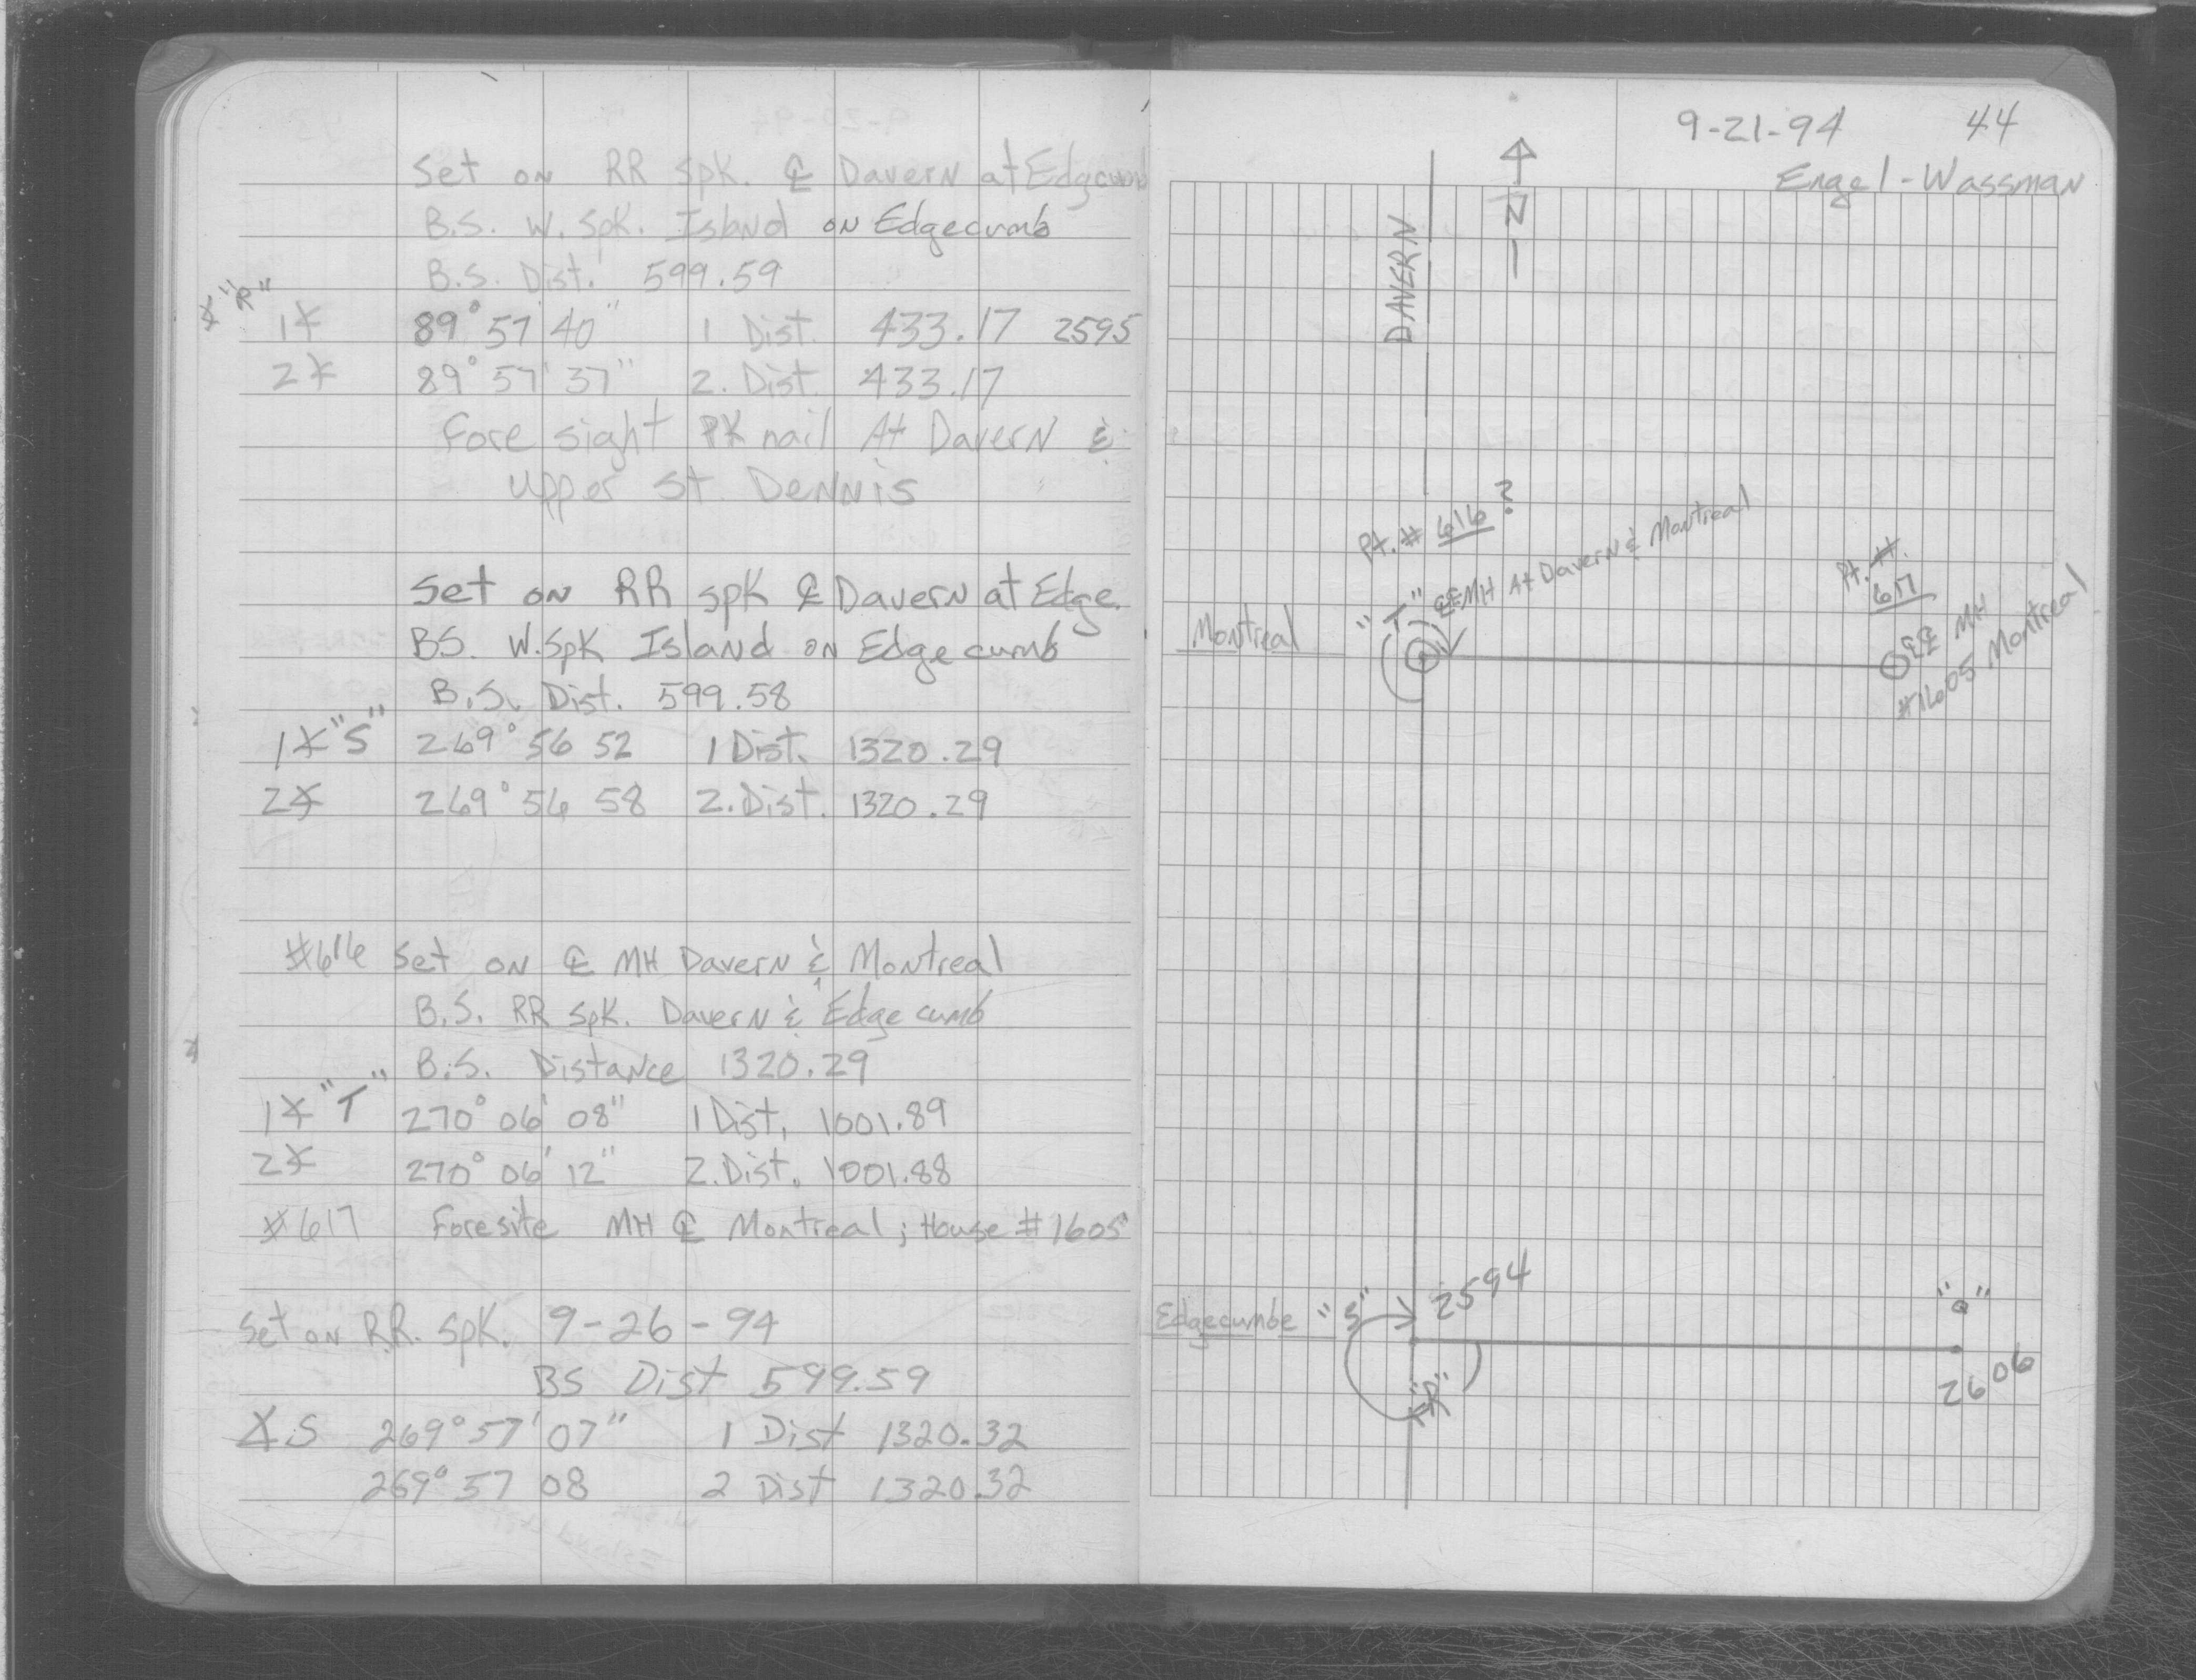 Set on RR Spk. ℄ Davern at Edgcumb
B.S. W. Spk. Island on Edgecumb
B.S. Dist. 599.59
∡ "R"
1∡ 89° 57' 40" 1 Dist. 433.17 2595
2∡ 89° 57' 37" 2. Dist. 433.17
Fore sight PK nail At Davern &
Upper St. Dennis
Set on RR spk ℄ Davern at Edge.
BS. W.Spk Island on Edgecumb
B.S. Dist. 599.58
1∡ "S" 269° 56 52 1 Dist. 1320.29
2∡ 269° 56 58 2. Dist. 1320.29
#616 Set on ℄ MH Davern & Montreal
B.S. RR Spk. Davern & Edgecumb
B.S. Distance 1320.29
1∡ "T" 270° 06' 08" 1 Dist. 1001.89
2∡ 270° 06' 12" 2. Dist. 1001.88
#617 Foresite MH ℄ Montreal; House #1605
Set on R.R. Spk. 9-26-94
BS Dist 599.59
∡ S 269° 57' 07" 1 Dist 1320.32
269° 57 08 2 Dist 1320.32
9-21-94 44
Engel-Wassman
N
DAVERN
Pt. # 616 ?
"T" ℄ MH At Davern & Montreal
Pt. #
617
Montreal
℄ MH
#1605 Montreal
Edgecumbe "S" 2594
"Q"
2606
"R"